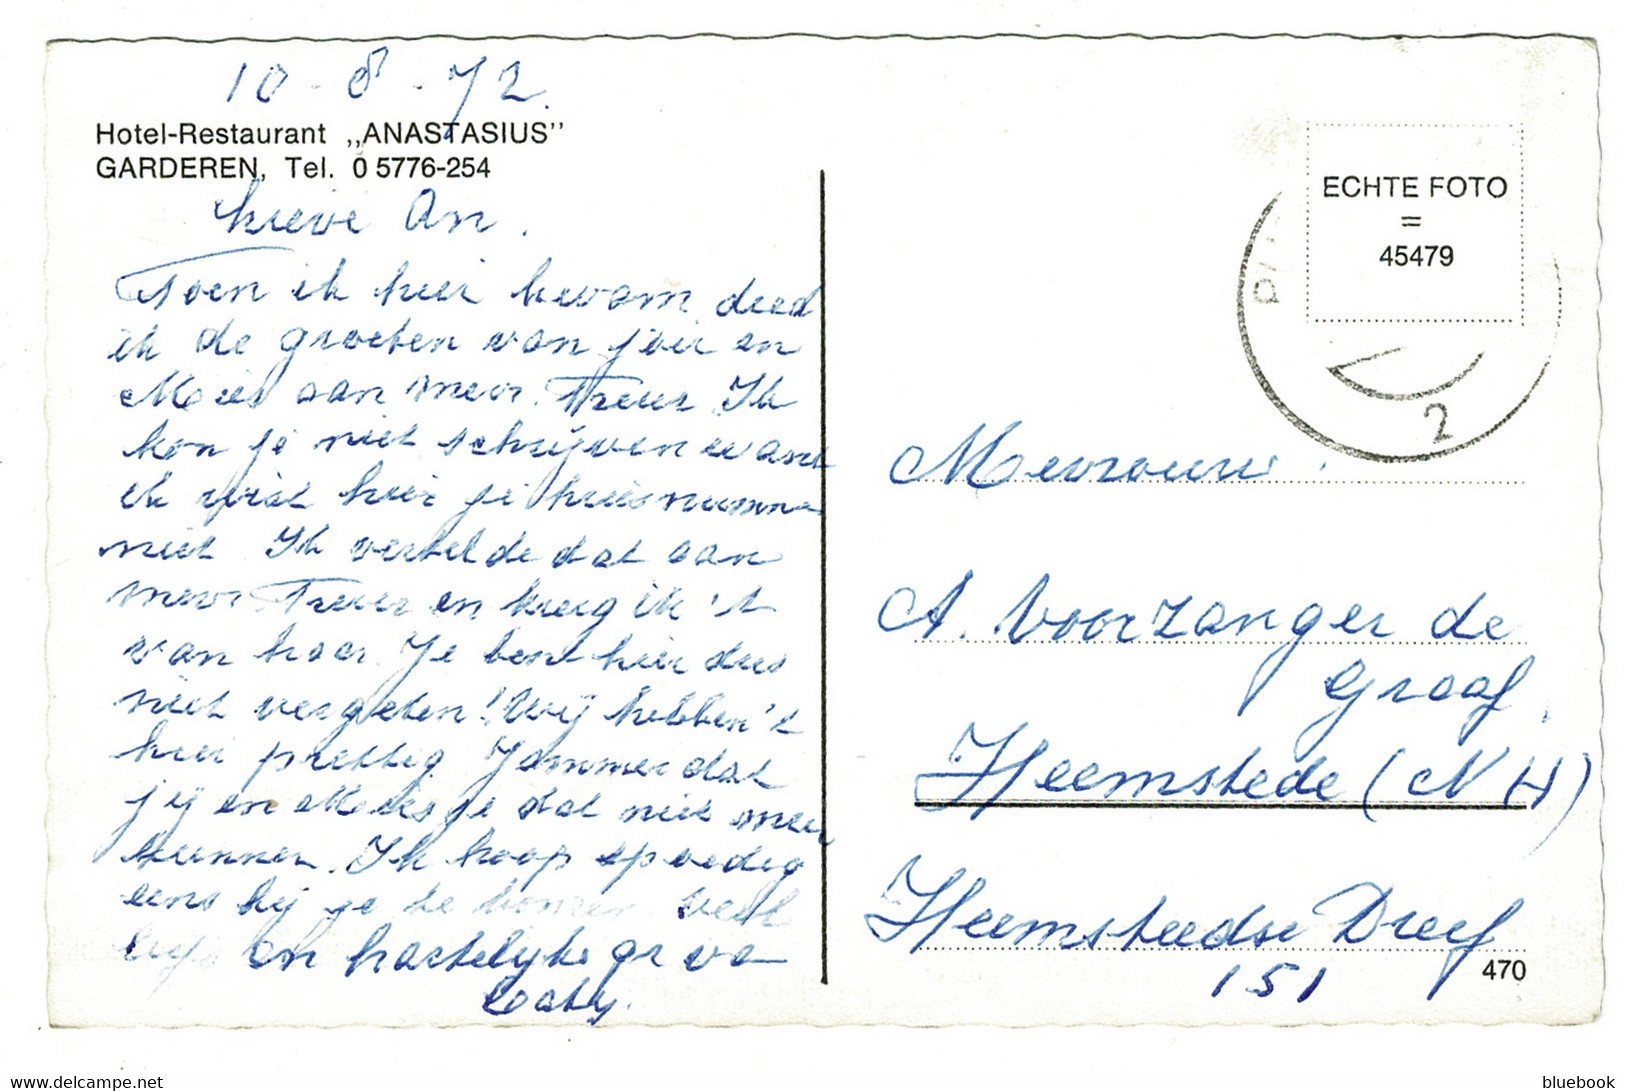 10-8-72.
Hotel-Restaurant „ANASTASIUS”
GARDEREN, Tel. 0 5776-254
Lieve An.
Toen ik hier kwam deed
ik de groeten van jou en
Mees aan mevr. Treur. Ik
kon je niet schrijven want
ik wist hier je huisnumme
niet. Ik vertelde dat aan
mevr. Treur en kreeg ik 't
van haar. Je bent hier dus
niet vergeten! Wij hebben 't
hier prettig. Jammer dat
jij en Mees je dat niet meer
kunnen. Ik hoop spoedig
eens bij je te komen. Veel
liefs en hartelijke gr va
ECHTE FOTO
=
45479
2
Mevrouw.
A. Voorzanger de
Graaf.
Heemstede (NH)
Heemsteedse Dreef
151
470
bluebook